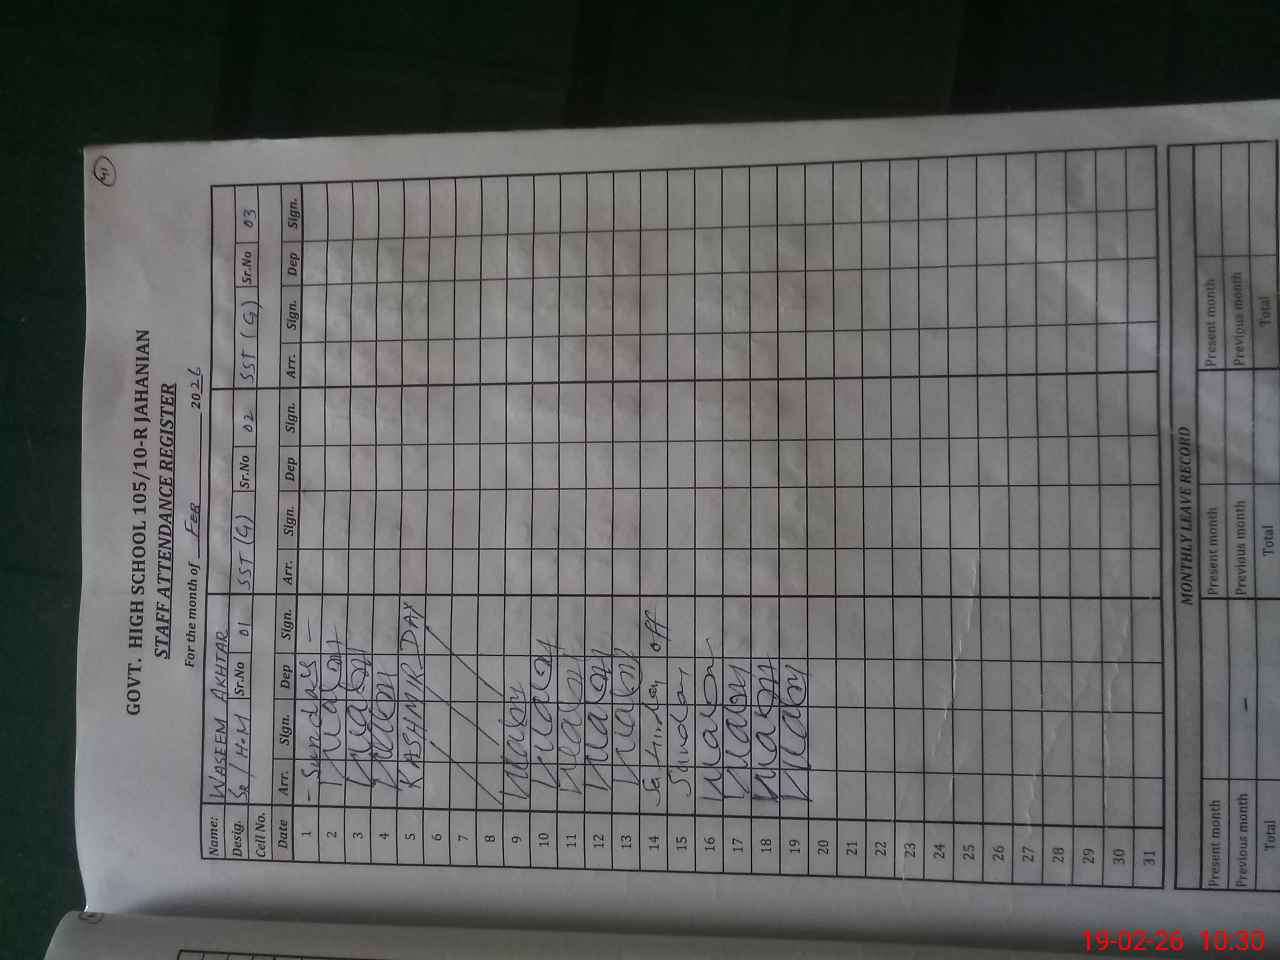 41
GOVT. HIGH SCHOOL 105/10-R JAHANIAN
STAFF ATTENDANCE REGISTER
For the month of Feb 2026
Name: WASEEM AKHTAR
Desig. Sr/H.M Sr.No 01 SST (G) Sr.No 02 SST (G) Sr.No 03
Cell No.
Date Arr. Sign. Dep Sign. Arr. Sign. Dep Sign. Arr. Sign. Dep Sign.
1 - Sunday -
2
3
4
5 KASHMIR DAY
6
7
8
9
10
11
12
13
14 Saturday off
15 Sunday
16
17
18
19
20
21
22
23
24
25
26
27
28
29
30
31
MONTHLY LEAVE RECORD
Present month Present month Present month
Previous month - Previous month Previous month
Total Total Total
19-02-26 10:30